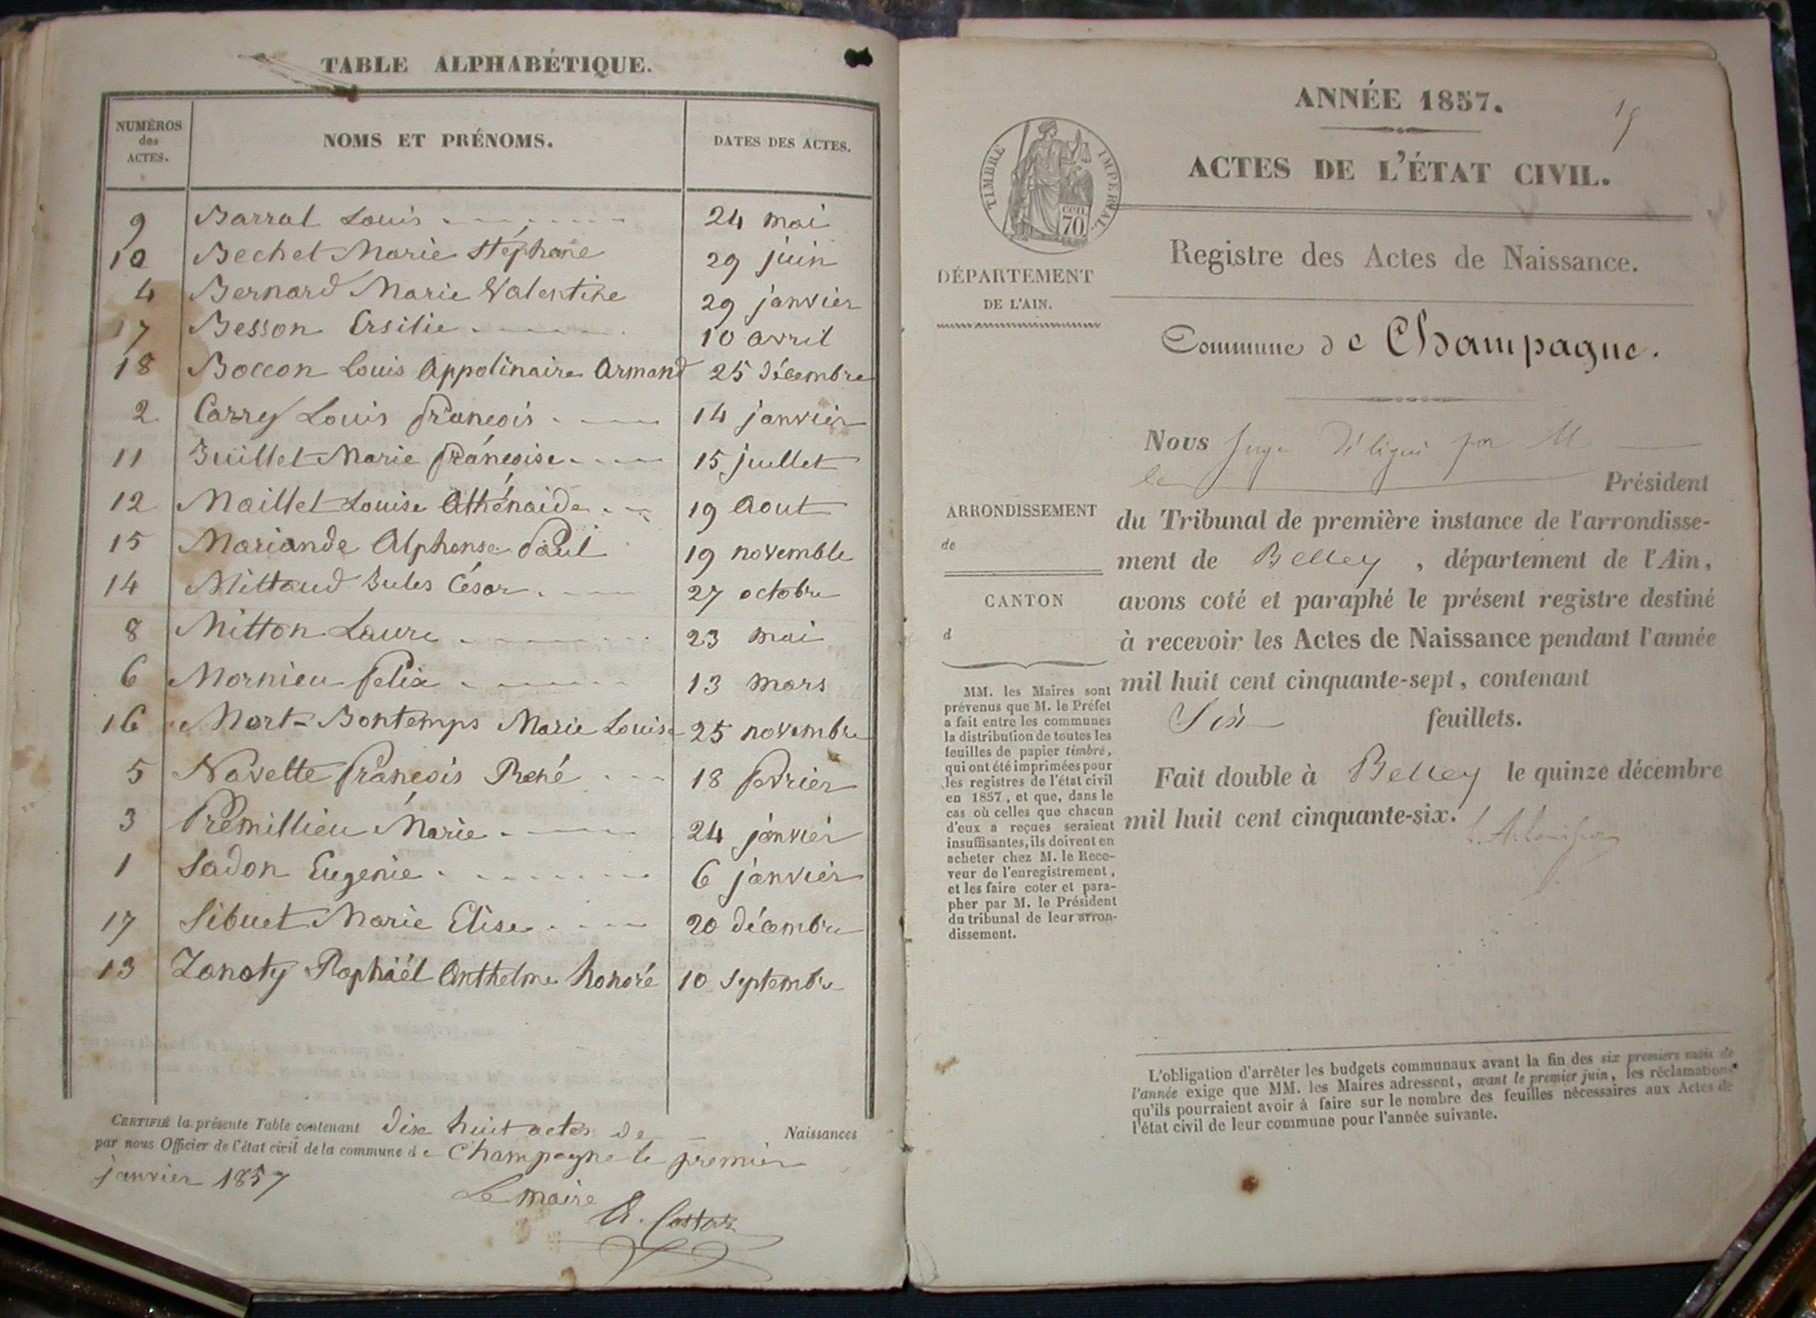 TABLE ALPHABÉTIQUE.
NUMÉROS
des
ACTES.
NOMS ET PRÉNOMS.
DATES DES ACTES.
9 Barral Louis 24 mai
10 Bechet Marie Stéphanie 29 juin
4 Bernard Marie Valentine 29 janvier
17 Besson Ersilie 10 avril
18 Boccon Louis Appolinaire Armand 25 décembre
2 Carrey Louis françois 14 janvier
11 Juillet Marie françoise 15 juillet
12 Maillet Louise Athénaide 19 Aout
15 Mariande Alphonse Paul 19 novemble
14 Mittaud Jules César 27 octobre
8 Mitton Laure 23 mai
6 Mornieu felix 13 mars
16 Mort-Bontemps Marie Louise 25 novembre
5 Navette françois René 18 fevrier
3 Prémillieu Marie 24 janvier
1 Sadon Eugenie 6 janvier
17 Sibuet Marie Elise 20 décembre
13 Zanoty Raphaël Anthelme honoré 10 septembre
CERTIFIÉ la présente Table contenant dix huit actes de Naissances
par nous Officier de l'état civil de la commune de Champagne le premier
janvier 1857
Le maire
ANNÉE 1857.
ACTES DE L'ÉTAT CIVIL.
TIMBRE IMPÉRIAL
cen.
70
Registre des Actes de Naissance.
DÉPARTEMENT
DE L'AIN.
Commune de Champagne.
Nous Juge Délégué par M
le Président
ARRONDISSEMENT
de
CANTON
d
du Tribunal de première instance de l'arrondisse-
ment de Belley, département de l'Ain,
avons coté et paraphé le présent registre destiné
à recevoir les Actes de Naissance pendant l'année
mil huit cent cinquante-sept, contenant
Six feuillets.
Fait double à Belley le quinze décembre
mil huit cent cinquante-six.
MM. les Maires sont
prévenus que M. le Préfet
a fait entre les communes
la distribution de toutes les
feuilles de papier timbré,
qui ont été imprimées pour
les registres de l'état civil
en 1857, et que, dans le
cas où celles que chacun
d'eux a reçues seraient
insuffisantes, ils doivent en
acheter chez M. le Rece-
veur de l'enregistrement,
et les faire coter et para-
pher par M. le Président
du tribunal de leur arron-
dissement.
L'obligation d'arrêter les budgets communaux avant la fin des six premiers mois de
l'année exige que MM. les Maires adressent, avant le premier juin, les réclamations
qu'ils pourraient avoir à faire sur le nombre des feuilles nécessaires aux Actes de
l'état civil de leur commune pour l'année suivante.